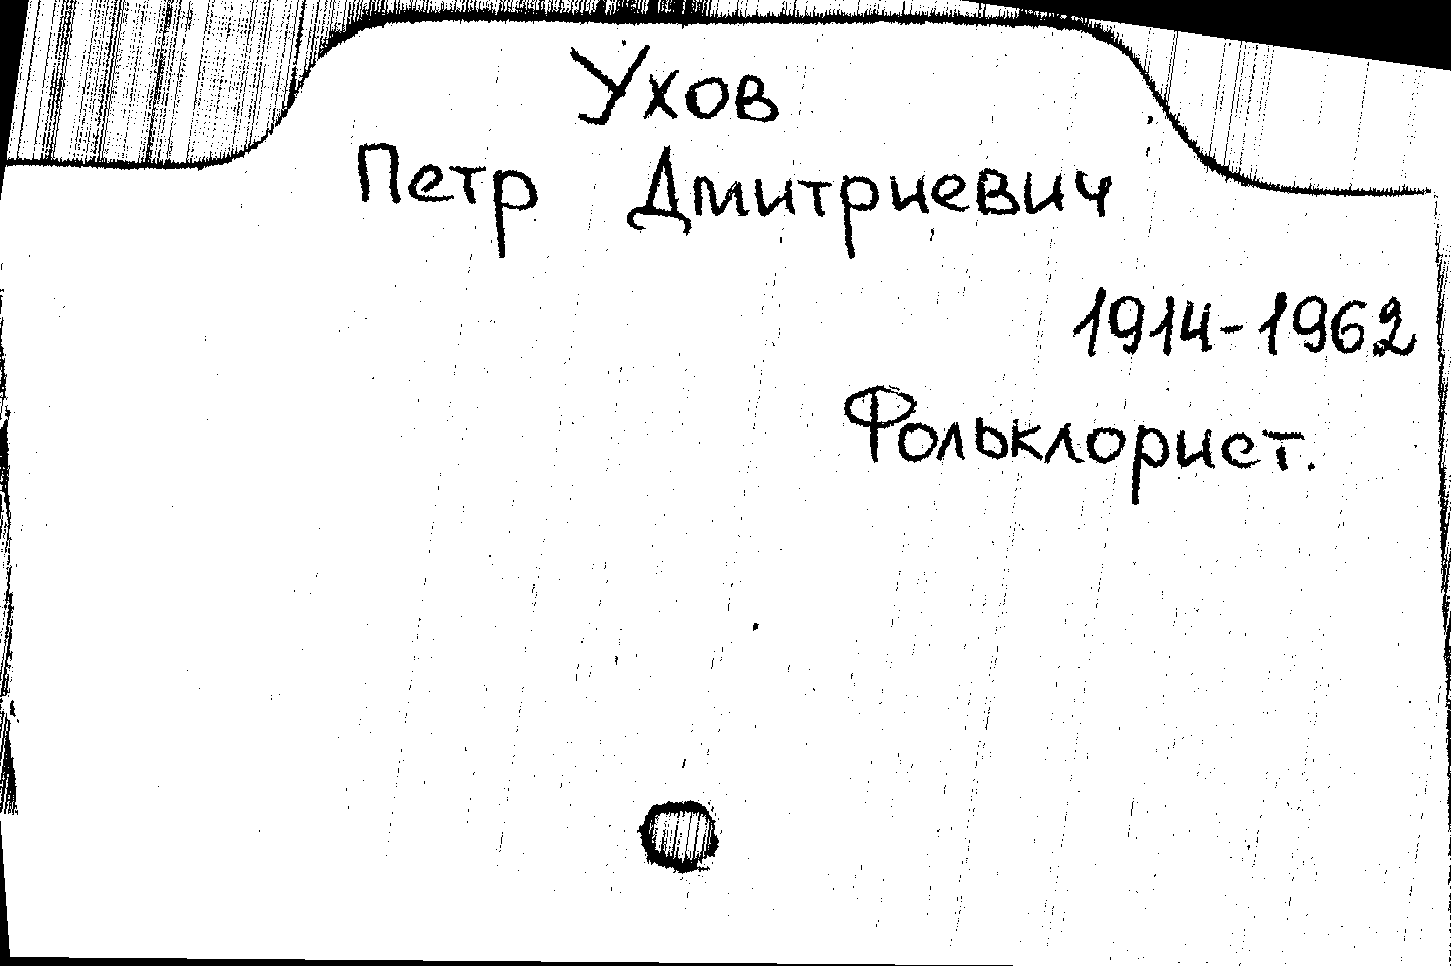 Ухов
Петр Дмитриевич
1914-1962
Фольклорист.